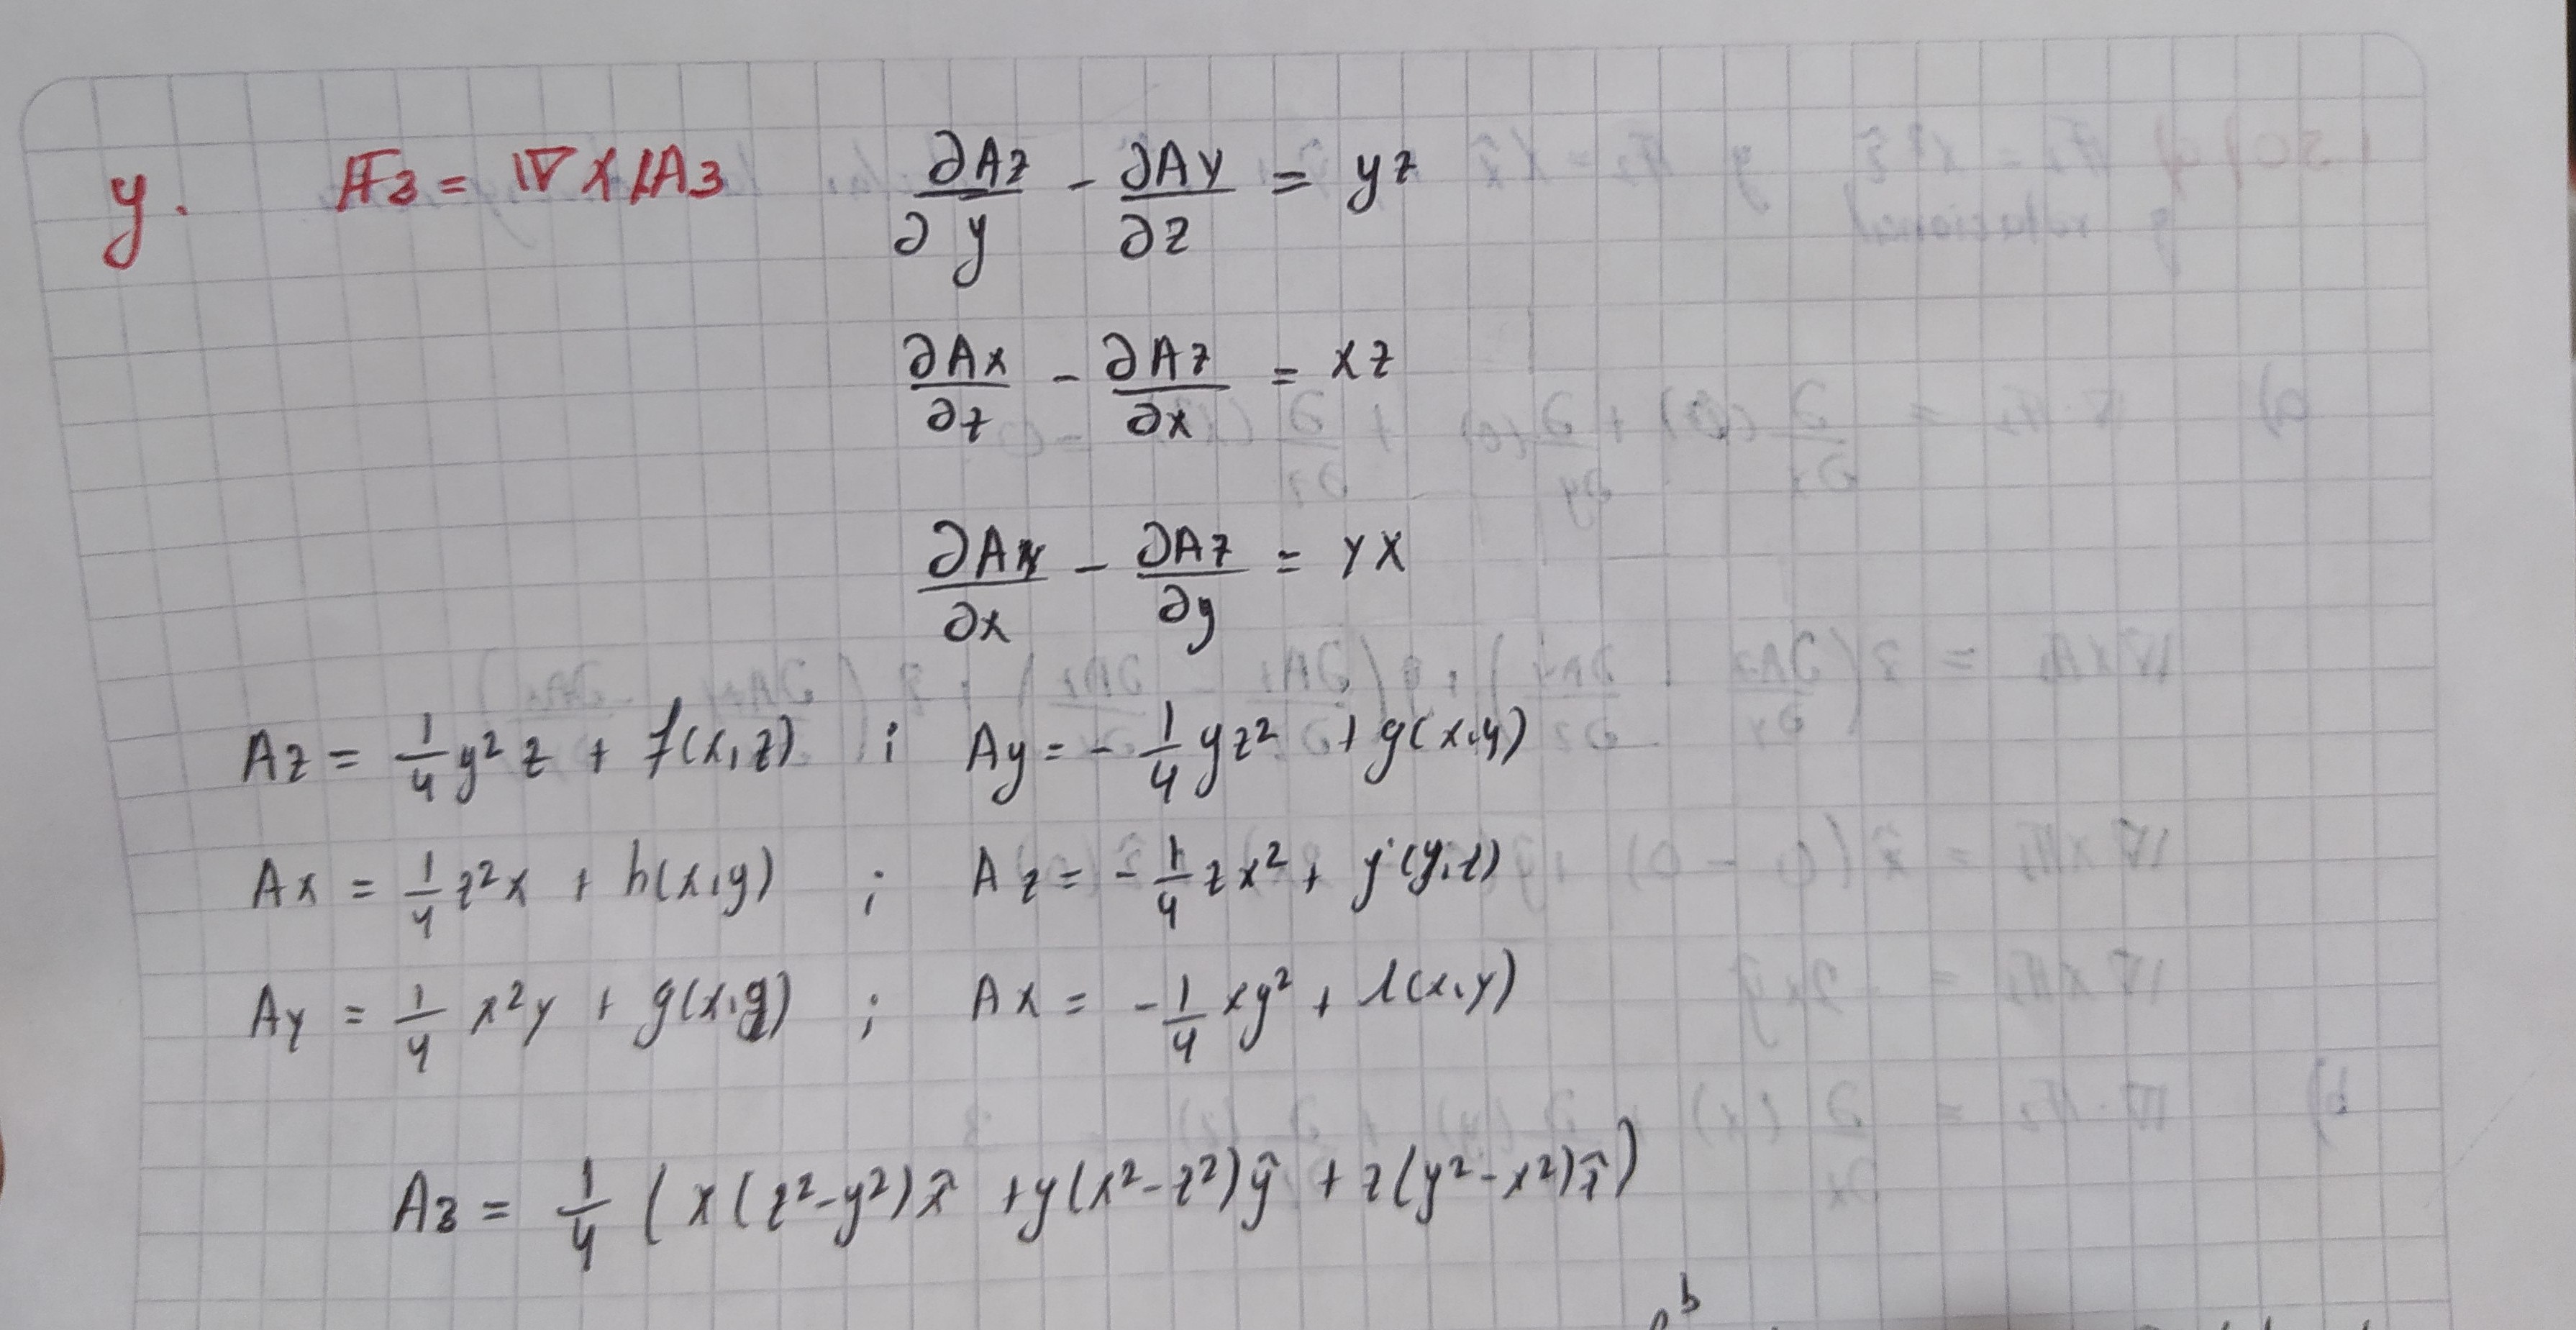 y. 𝔽3 = ∇ × 𝔸3 ∂Az/∂y - ∂Ay/∂z = yz
∂Ax/∂z - ∂Az/∂x = xz
∂Ay/∂x - ∂Az/∂y = yx
Az = 1/4 y² z + f(x,z) ; Ay = - 1/4 yz² + g(x,y)
Ax = 1/4 z²x + h(x,y) ; Az = - 1/4 zx² + j(y,z)
Ay = 1/4 x²y + g(x,y) ; Ax = - 1/4 xy² + l(x,y)
A3 = 1/4 (x(z²-y²)x̂ + y(x²-z²)ŷ + z(y²-x²)ẑ)
b